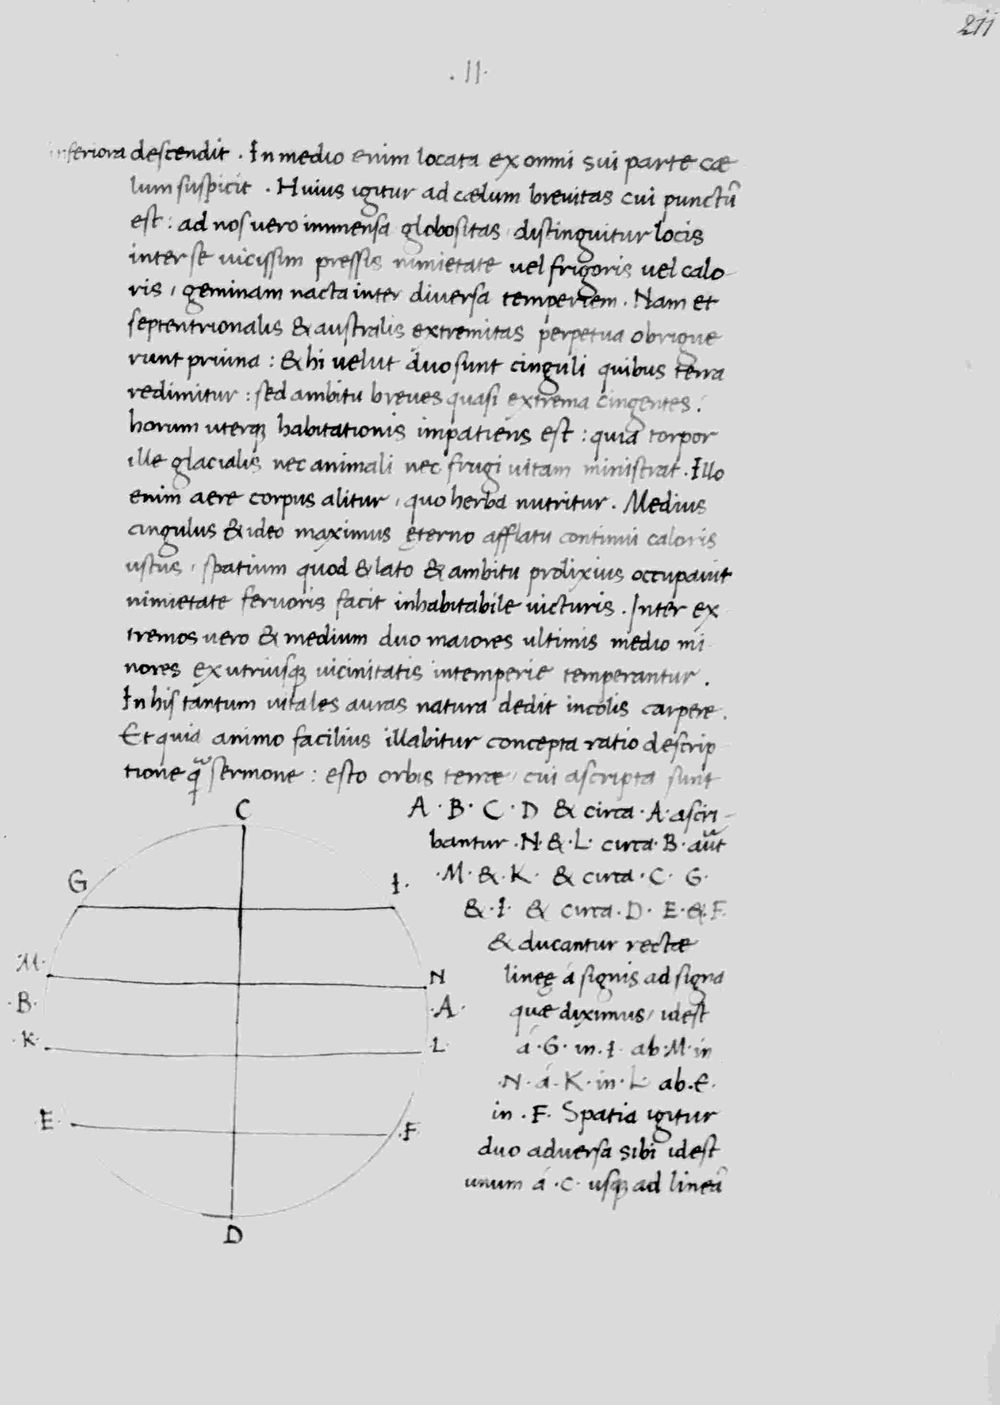 211
.II.
inferiora descendit . In medio enim locata ex omni sui parte cæ
lum suspicit . Huius igitur ad cælum brevitas cui punctū
est : ad nos vero immensa globositas distinguitur locis
inter se vicissim pressis nimietate vel frigoris vel calo-
ris , geminam nacta inter diversa temperiem . Nam et
septentrionalis & australis extremitas perpetua obrigue
runt pruina : & hi velut duo sunt cinguli quibus terra
redimitur : sed ambitu breves quasi extrema cingentes .
horum uterq; habitationis impatiens est : quia torpor
ille glacialis nec animali nec frugi vitam ministrat . Illo
enim aere corpus alitur , quo herba nutritur . Medius
cingulus & ideo maximus ęterno afflatu continui caloris
ustus , spatium quod & lato & ambitu prolixius occupavit
nimietate fervoris facit inhabitabile victuris . Inter ex
tremos vero & medium duo maiores ultimis medio mi
nores ex utriusq; vicinitatis intemperie temperantur .
In his tantum vitales auras natura dedit incolis carpere .
Et quia animo facilius illabitur concepta ratio descrip
tione q̄ sermone : esto orbis terræ , cui ascripta sunt
A · B · C · D & circa · A · ascri-
bantur . N · & · L · circa · B · aūt
· M · & · K · & circa · C · G ·
& · I · & circa . D · E · & · F
& ducantur rectæ
lineę á signis ad signa
quæ diximus , idest
á · G · in . I · ab · M · in
· N · á · K · in · L · ab . E .
in . F . Spatia igitur
duo adversa sibi idest
unum á · C · usq; ad lineā
C
G
I .
M .
N
· B ·
· A ·
· K ·
· L ·
E ·
. F ·
D